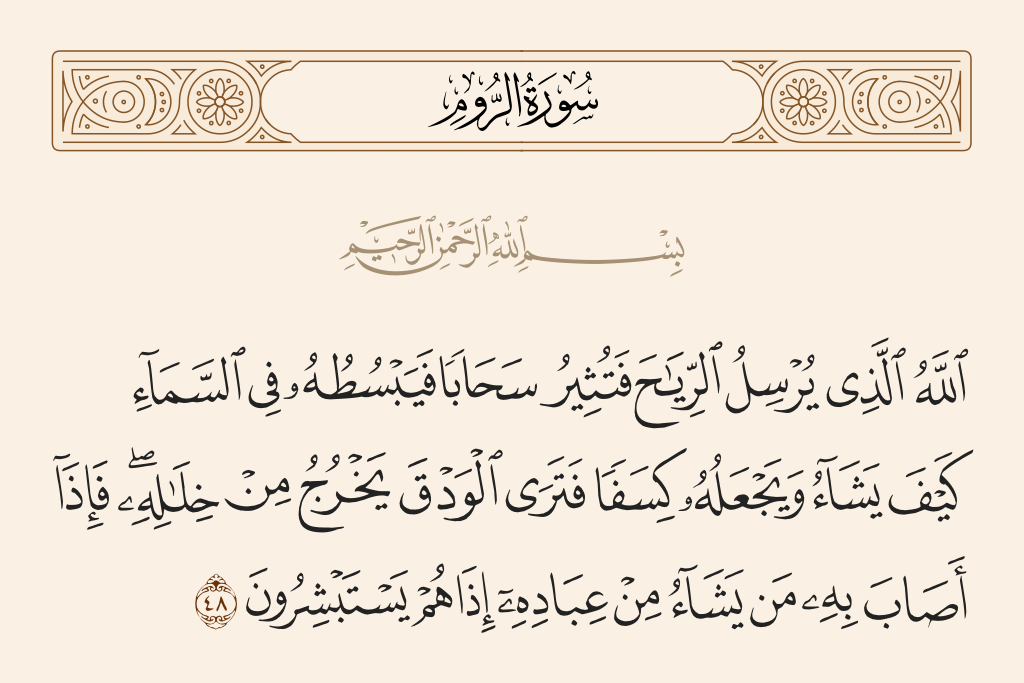 سُورَةُ الرُّومِ
بِسْمِ ٱللَّهِ ٱلرَّحْمَٰنِ ٱلرَّحِيمِ
ٱللَّهُ ٱلَّذِى يُرْسِلُ ٱلرِّيَٰحَ فَتُثِيرُ سَحَابًا فَيَبْسُطُهُۥ فِى ٱلسَّمَآءِ
كَيْفَ يَشَآءُ وَيَجْعَلُهُۥ كِسَفًا فَتَرَى ٱلْوَدْقَ يَخْرُجُ مِنْ خِلَٰلِهِۦ ۖ فَإِذَآ
أَصَابَ بِهِۦ مَن يَشَآءُ مِنْ عِبَادِهِۦٓ إِذَا هُمْ يَسْتَبْشِرُونَ ٤٨